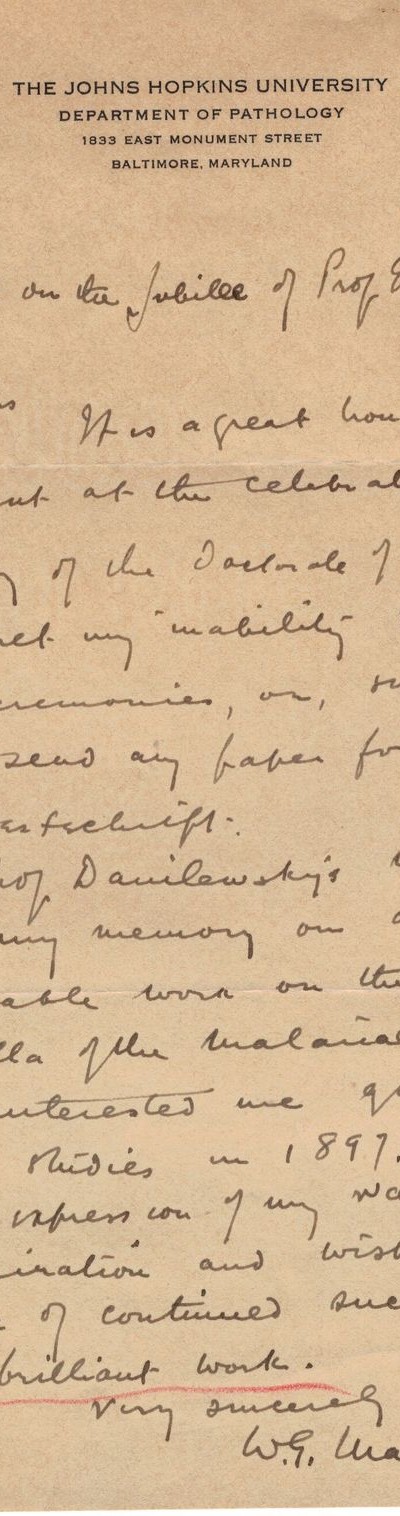 THE JOHNS HOPKINS UNIVERSITY
DEPARTMENT OF PATHOLOGY
1833 EAST MONUMENT STREET
BALTIMORE, MARYLAND
on the Jubilee of Prof
It is a great hon
ent at the celebrat
y of the Doctorate of
ret my inability
eremonies, or,
send any paper fo
estschrift.
rof Danilewsky's
my memory on
able work on the
lla of the malaria
interested me g
studies in 1897.
expression of my wa
iration and wish
of continued suc
brilliant work.
Very sincerely
W.G. Ma